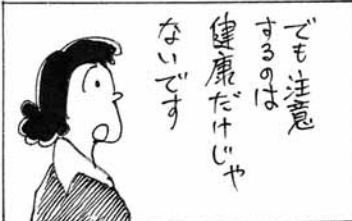 でも注意
するのは
健康だけじゃ
ないです